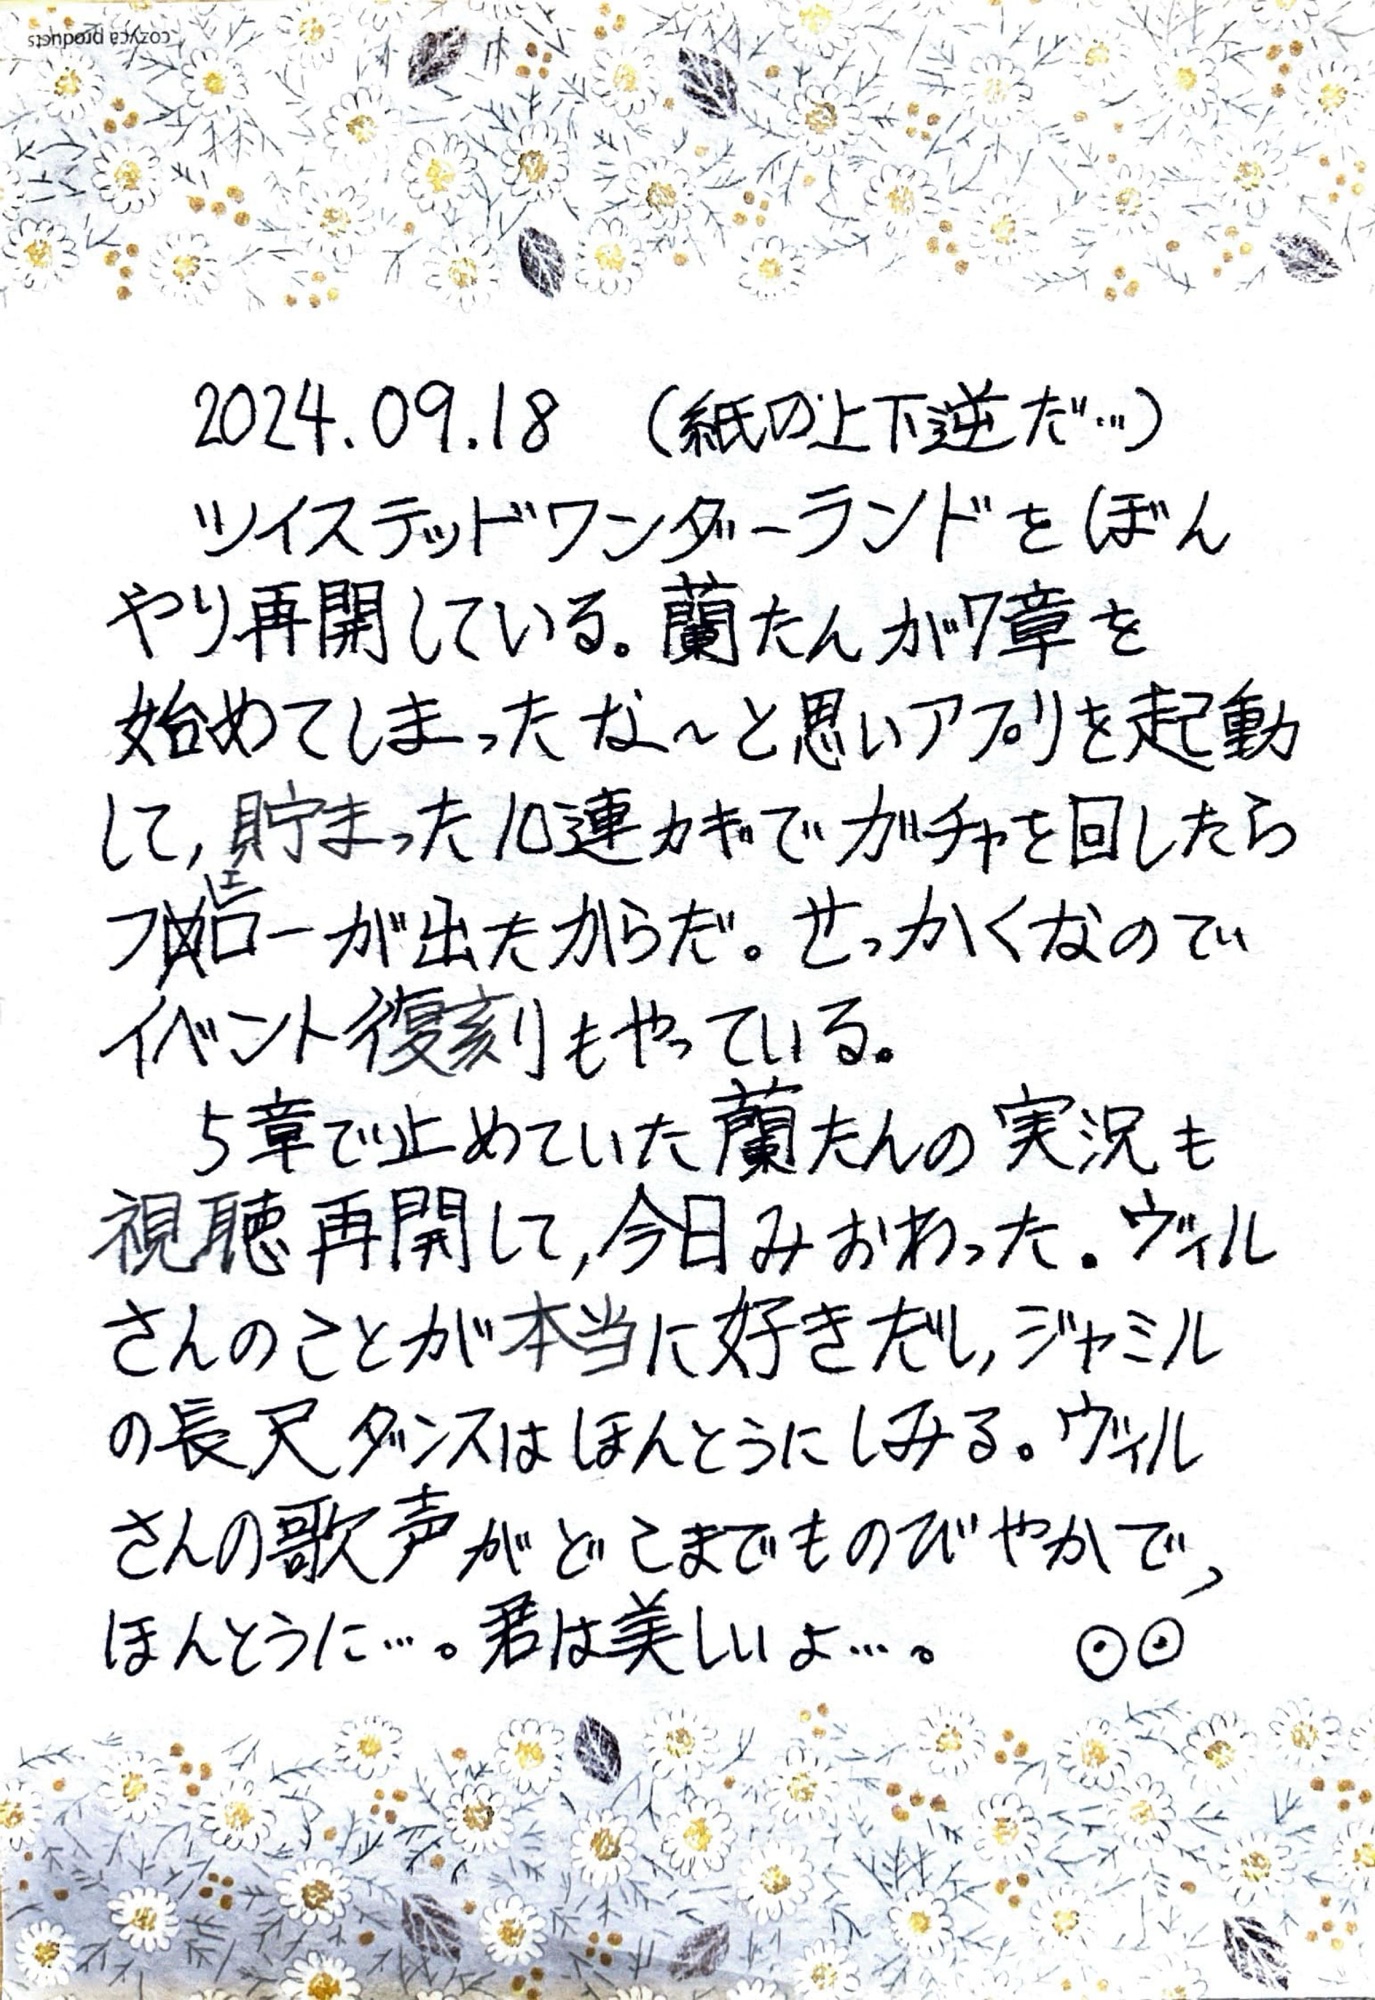 cozyca products
2024.09.18 (紙の上下逆だ…)
ツイステッドワンダーランドをぼん
やり再開している。蘭たんが7章を
始めてしまったな〜と思いアプリを起動
して,貯まった10連カギでガチャを回したら
フロイドが出たからだ。せっかくなので
イベント復刻もやっている。
5章で止めていた蘭たんの実況も
視聴再開して,今日みおわった。ヴィル
さんのことが本当に好きだし,ジャミル
の長尺ダンスはほんとうにしみる。ヴィル
さんの歌声がどこまでものびやかで,
ほんとうに…。君は美しいよ…。